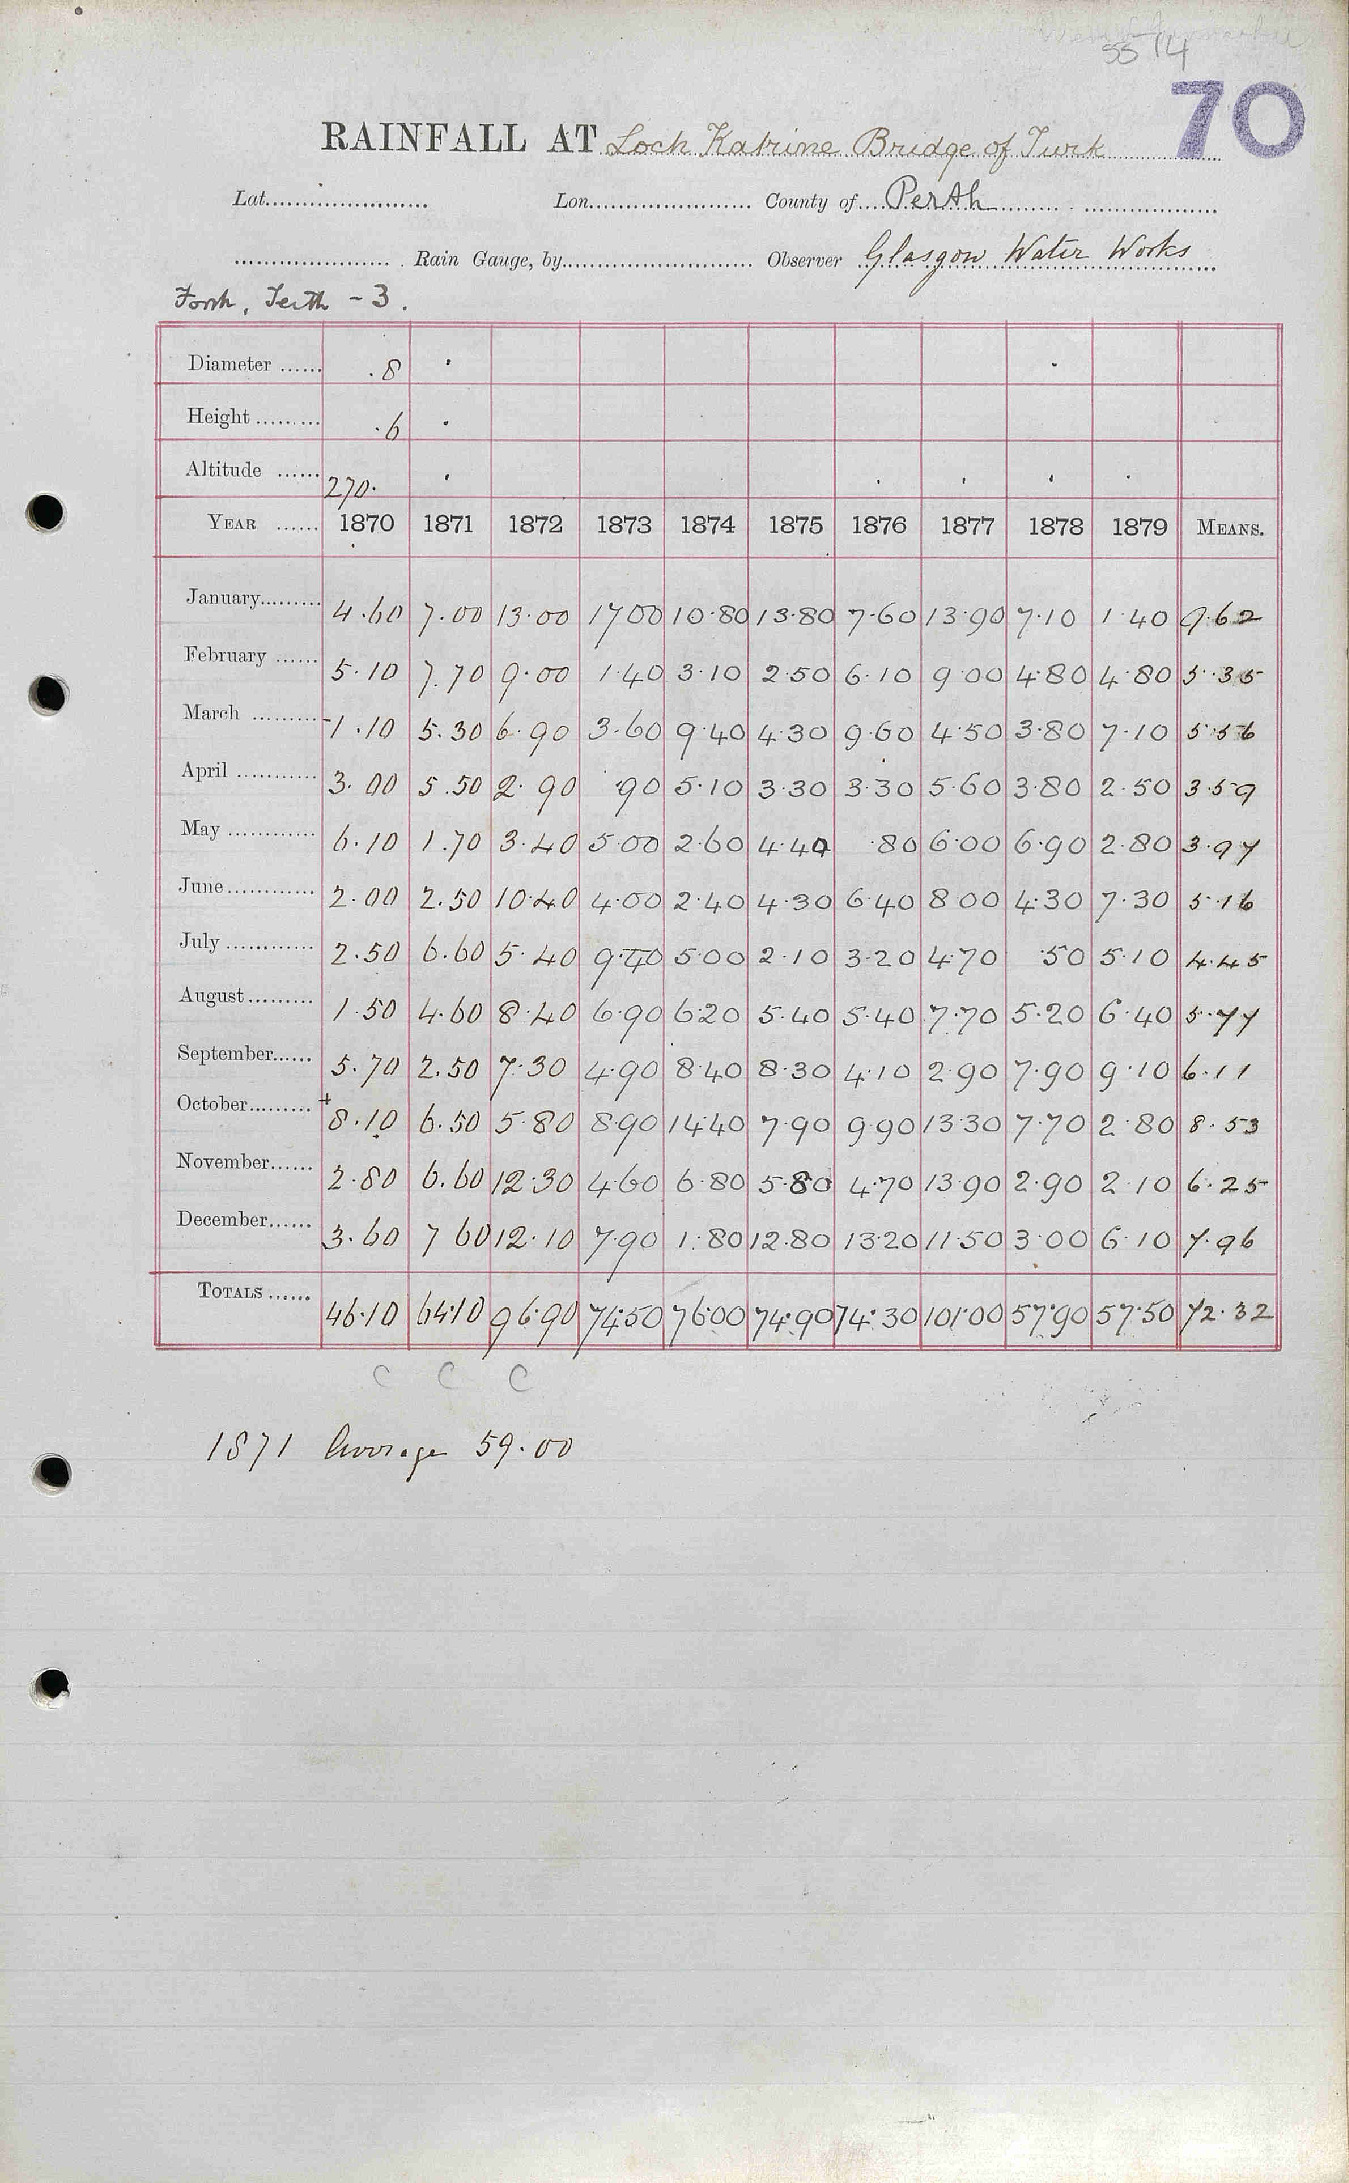 SS 14
70
RAINFALL AT Loch Katrine Bridge of Turk
Lat. Lon. County of Perth
Rain Gauge, by Observer Glasgow Water Works
Forth, Teith - 3.
Diameter .8
Height .6
Altitude 270.
YEAR 1870 1871 1872 1873 1874 1875 1876 1877 1878 1879 MEANS.
January 4.60 7.00 13.00 17 00 10.80 13.80 7.60 13.90 7.10 1.40 9.62
February 5.10 7.70 9.00 1.40 3.10 2.50 6.10 9 00 4.80 4.80 5.35
March 1.10 5.30 6.90 3.60 9.40 4.30 9.60 4.50 3.80 7.10 5.56
April 3.00 5.50 2.90 .90 5.10 3.30 3.30 5.60 3.80 2.50 3.59
May 6.10 1.70 3.40 5.00 2.60 4.40 .80 6.00 6.90 2.80 3.97
June 2.00 2.50 10.40 4.00 2.40 4.30 6.40 8 00 4.30 7.30 5.16
July 2.50 6.60 5.40 9.40 5.00 2.10 3.20 4.70 .50 5.10 4.45
August 1.50 4.60 8.40 6.90 6.20 5.40 5.40 7.70 5.20 6.40 5.77
September 5.70 2.50 7.30 4.90 8.40 8.30 4.10 2.90 7.90 9.10 6.11
October + 8.10 6.50 5.80 8.90 14.40 7.90 9.90 13.30 7.70 2.80 8.53
November 2.80 6.60 12.30 4.60 6.80 5.80 4.70 13.90 2.90 2.10 6.25
December 3.60 7 60 12.10 7.90 1.80 12.80 13.20 11.50 3.00 6.10 7.96
TOTALS 46.10 64.10 96.90 74.50 76.00 74.90 74.30 101.00 57.90 57.50 72.32
C C C
1871 Average 59.00